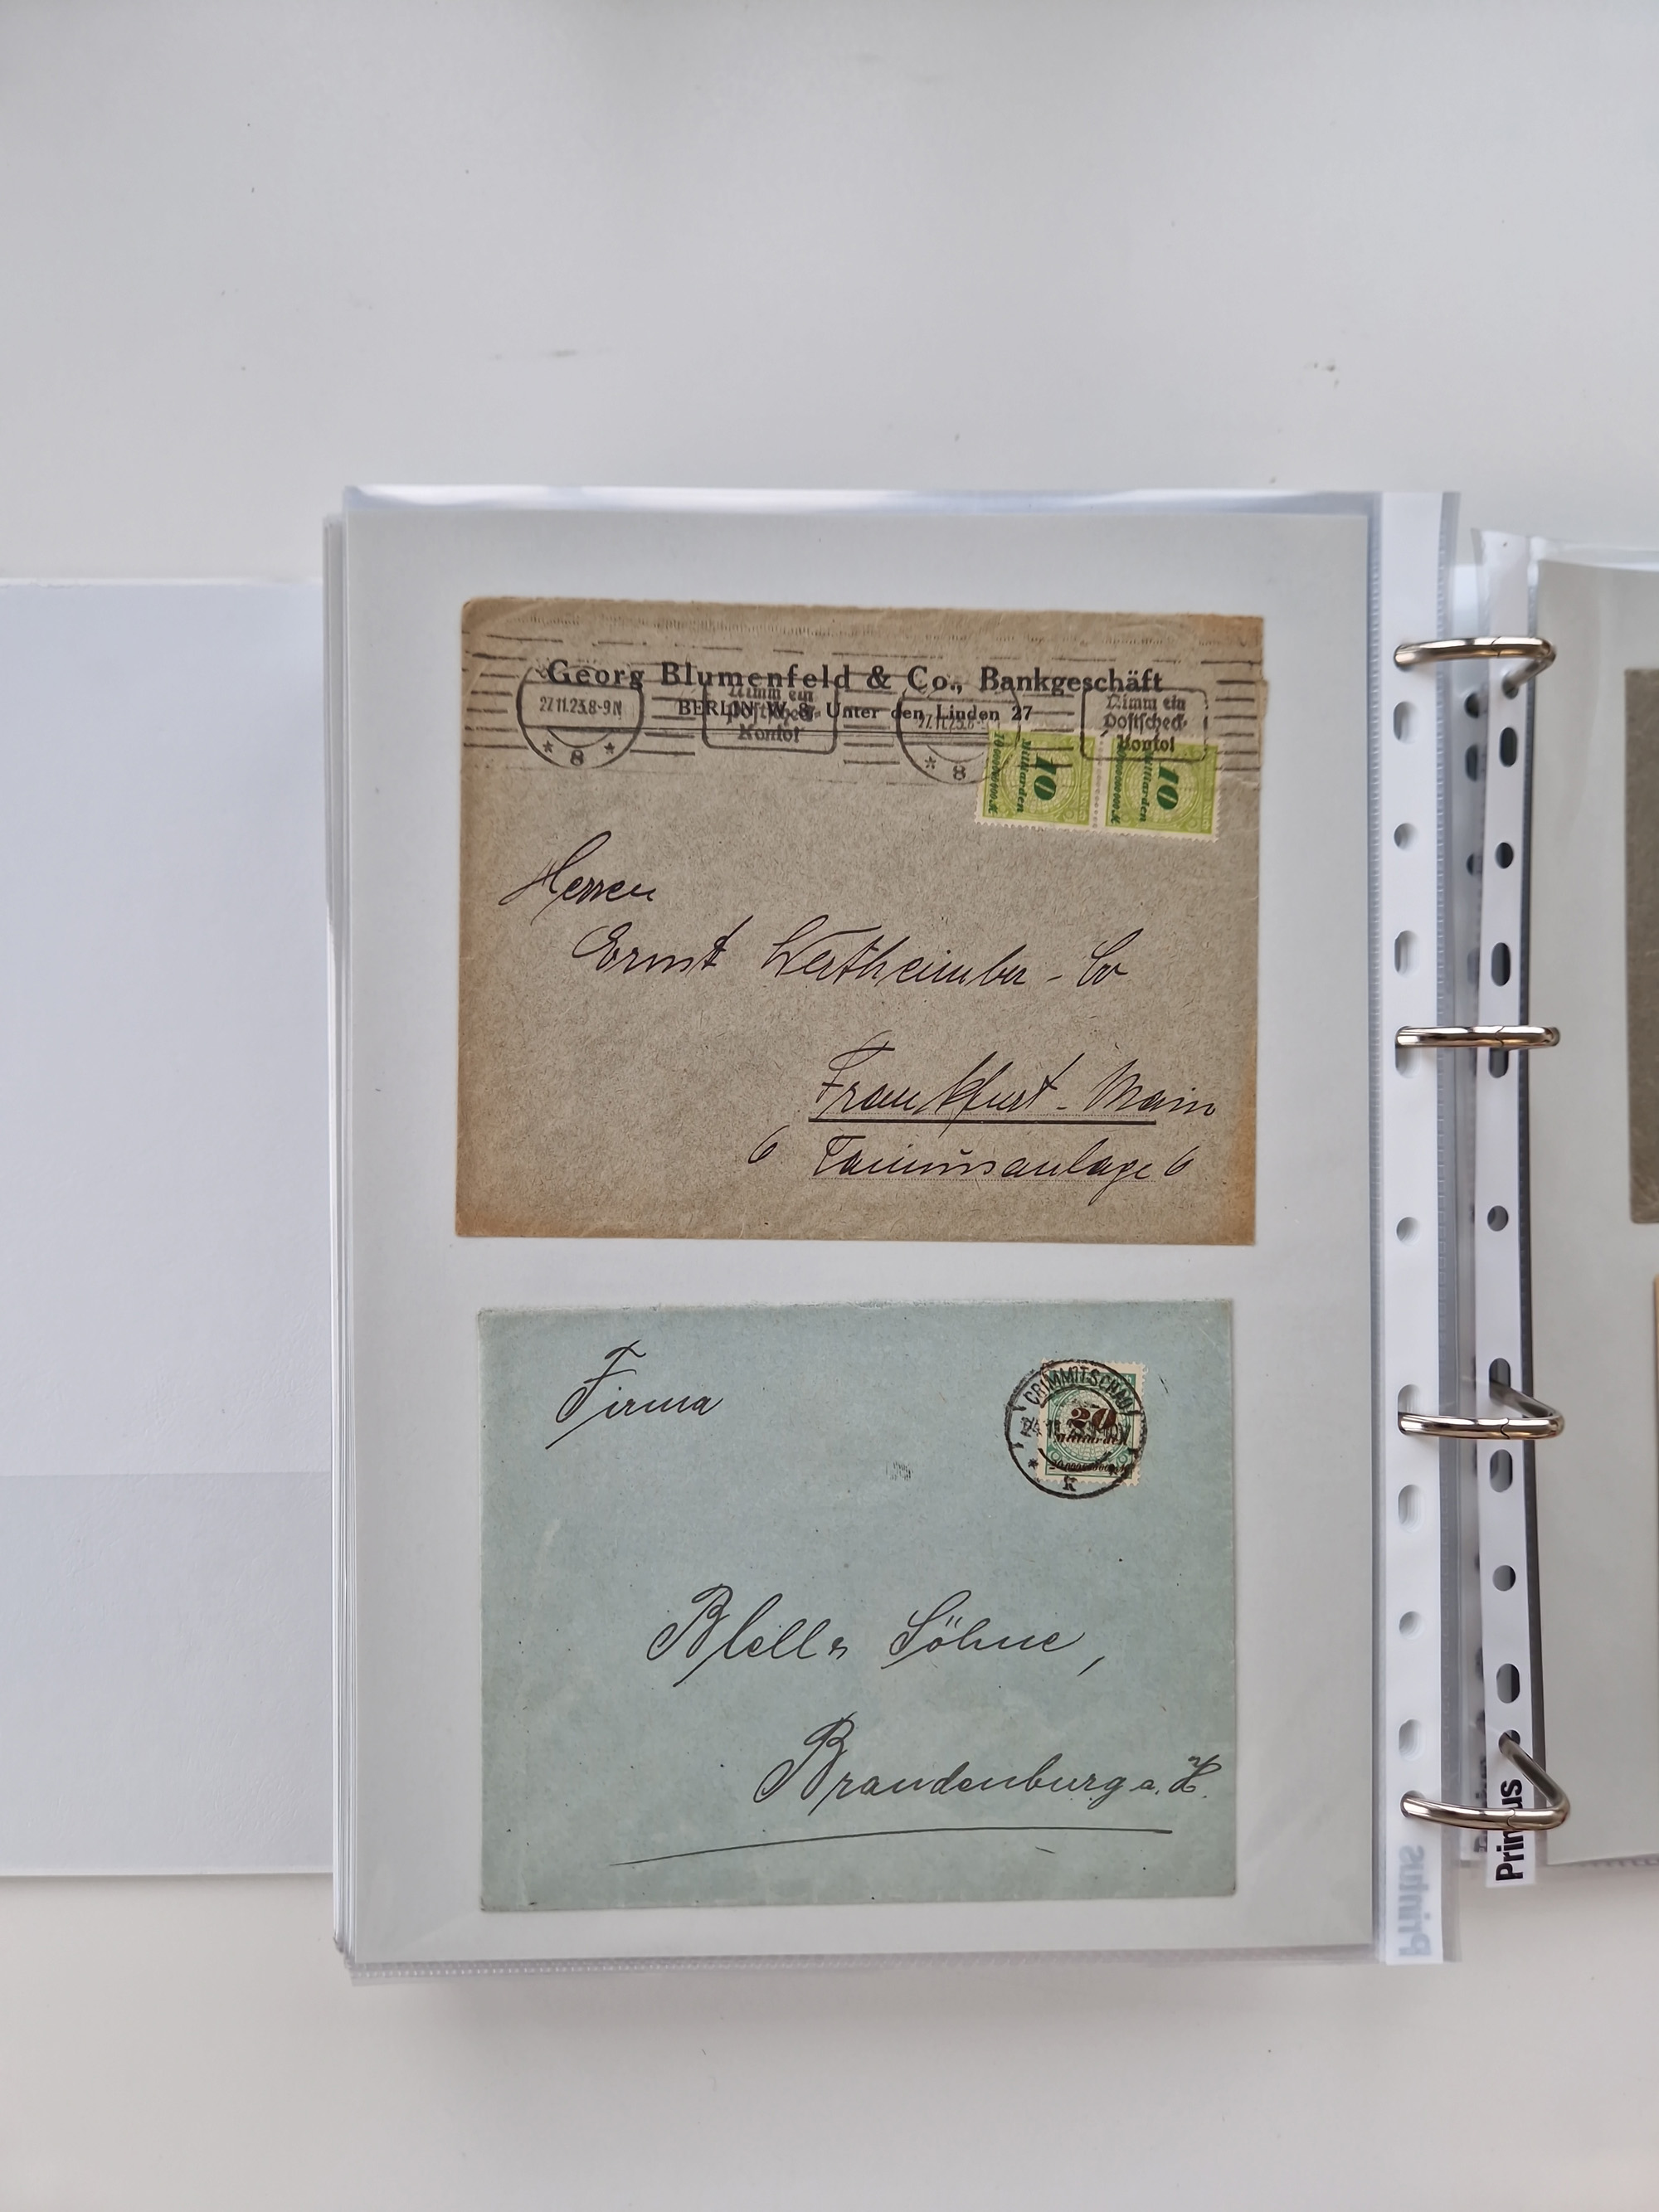 Georg Blumenfeld & Co., Bankgeschäft
BERLIN W. 8, Unter den Linden 27
27.11.23.8-9N
* 8 *
Nimm ein
Postscheck-
Konto!
27.11.23.8-
* 8
Nimm ein
Postscheck-
Konto!
10
Milliarden
10
Milliarden
Herren
Ernst Wertheimber - Co
Frankfurt - Main
6 Taunusanlage 6
Firma
CRIMMITSCHAU
20
Milliarden
* k
Blell's Söhne,
Brandenburg a. H.
Printus
Printus